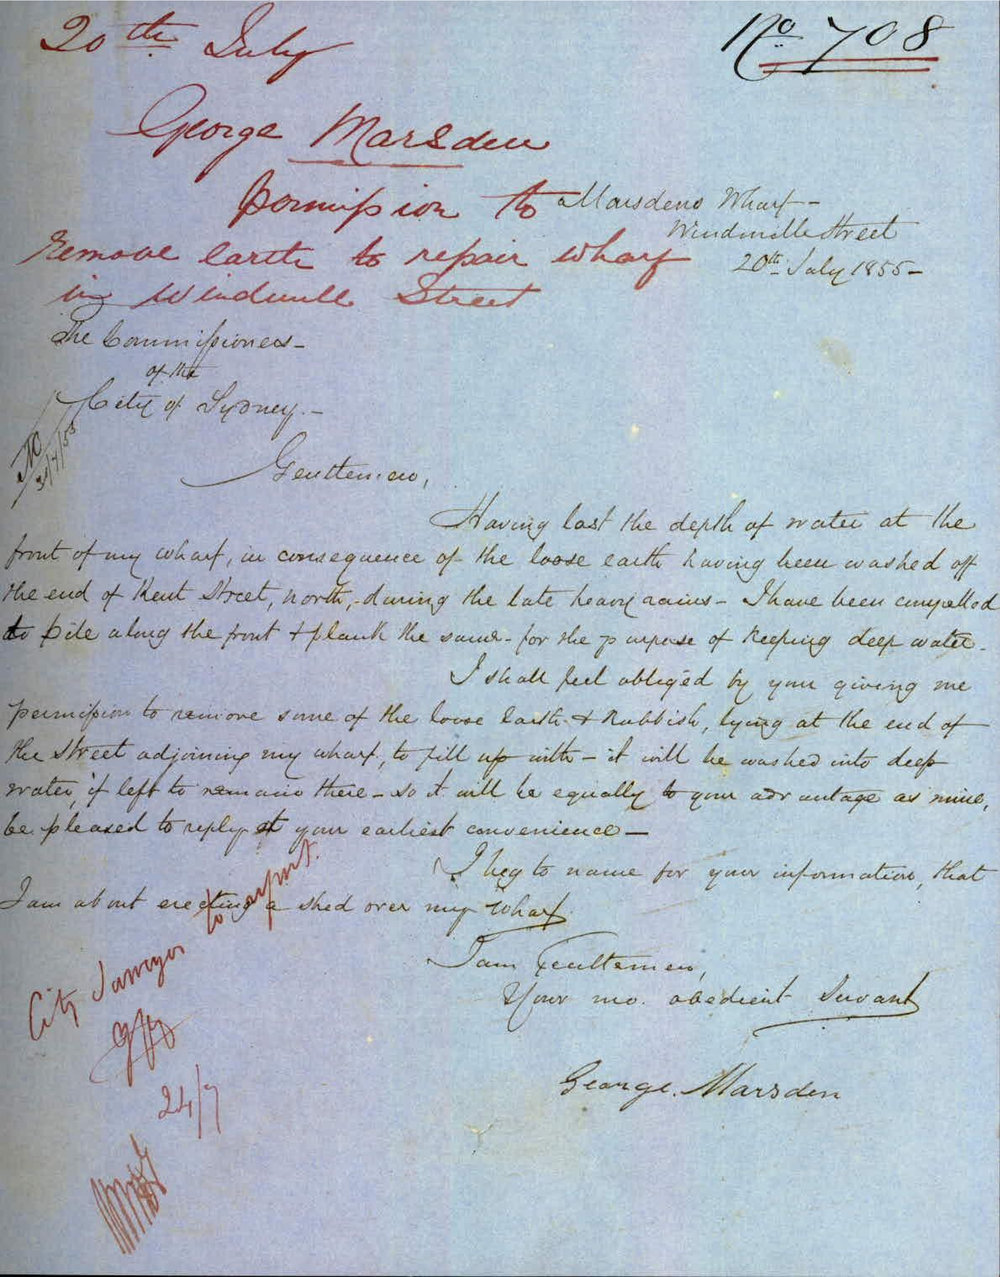 20th July
No 708
George Marsden
permission to
remove earth to repair wharf
in Windmill Street
Marsdens Wharf -
Windmill Street
20th July 1855 -
The Commissioners -
of the
City of Sydney. -
31/7/55
Gentlemen,
Having lost the depth of water at the
front of my wharf, in consequence of the loose earth having been washed off
the end of Kent Street, north, during the late heavy rains - I have been compelled
to pile along the front & plank the same - for the purpose of keeping deep water -
I shall feel obliged by your giving me
permission to remove some of the loose Earth & Rubbish, lying at the end of
the street adjoining my wharf, to fill up with - it will be washed into deep
water, if left to remain there - so it will be equally to your advantage as mine,
be pleased to reply at your earliest convenience -
I beg to name for your information, that
I am about erecting a shed over my wharf.
I am Gentlemen,
Your mo. obedient Servant
George. Marsden
City Surveyor to report.
24/7